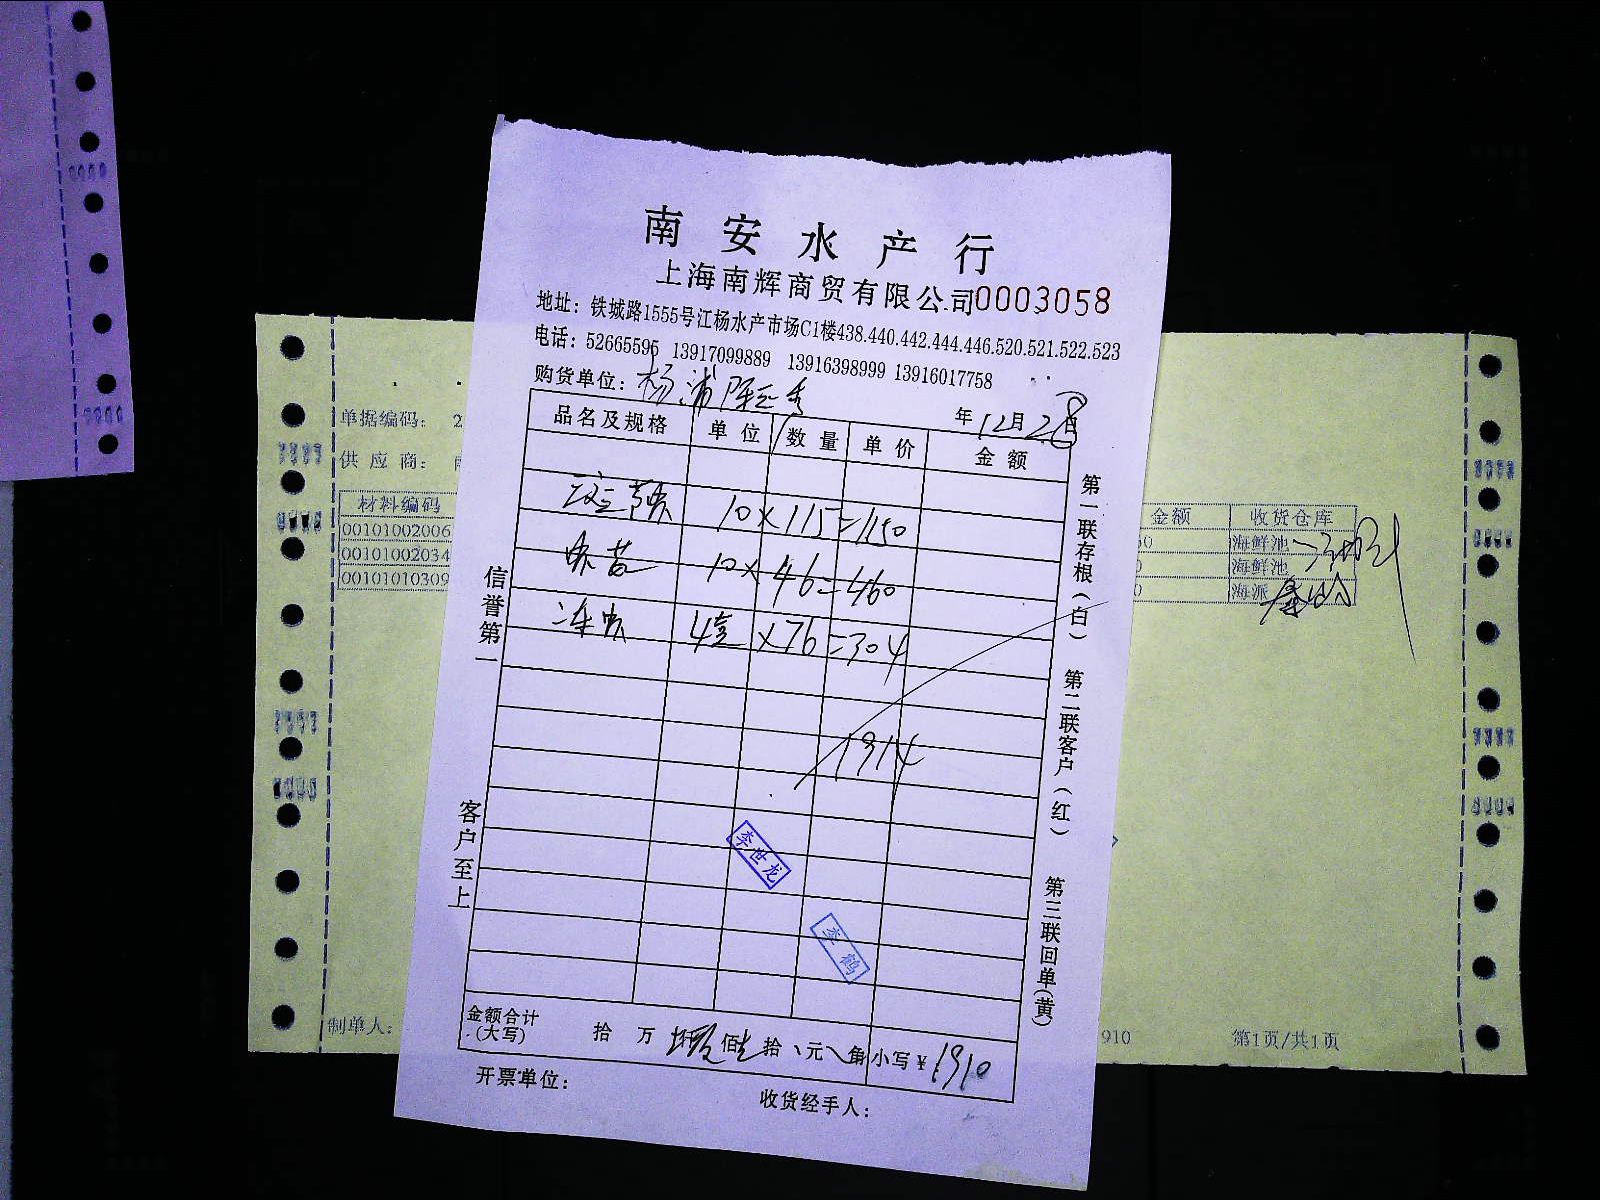 南安水产行
上海南辉商贸有限公司0003058
地址：铁城路1555号江杨水产市场C1楼438.440.442.444.446.520.521.522.523
电话：52665595 13917099889 13916398999 13916017758
购货单位：杨浦
年12月28日
品名及规格 单位 数量 单价 金额
10×115=1150
10×46=460
4 ×76=304
1914
李世龙
李鹤
金额合计(大写) 拾 万 佰 拾 元 角 小写￥1910
开票单位：
收货经手人：
信誉第一
客户至上
第一联存根(白)
第二联客户(红)
第三联回单(黄)
单据编码： 2
供应商：
材料编码
00101002006
00101002034
00101010309
制单人：
金额 收货仓库
0 海鲜池
0 海鲜池
0 海派
910
第1页/共1页